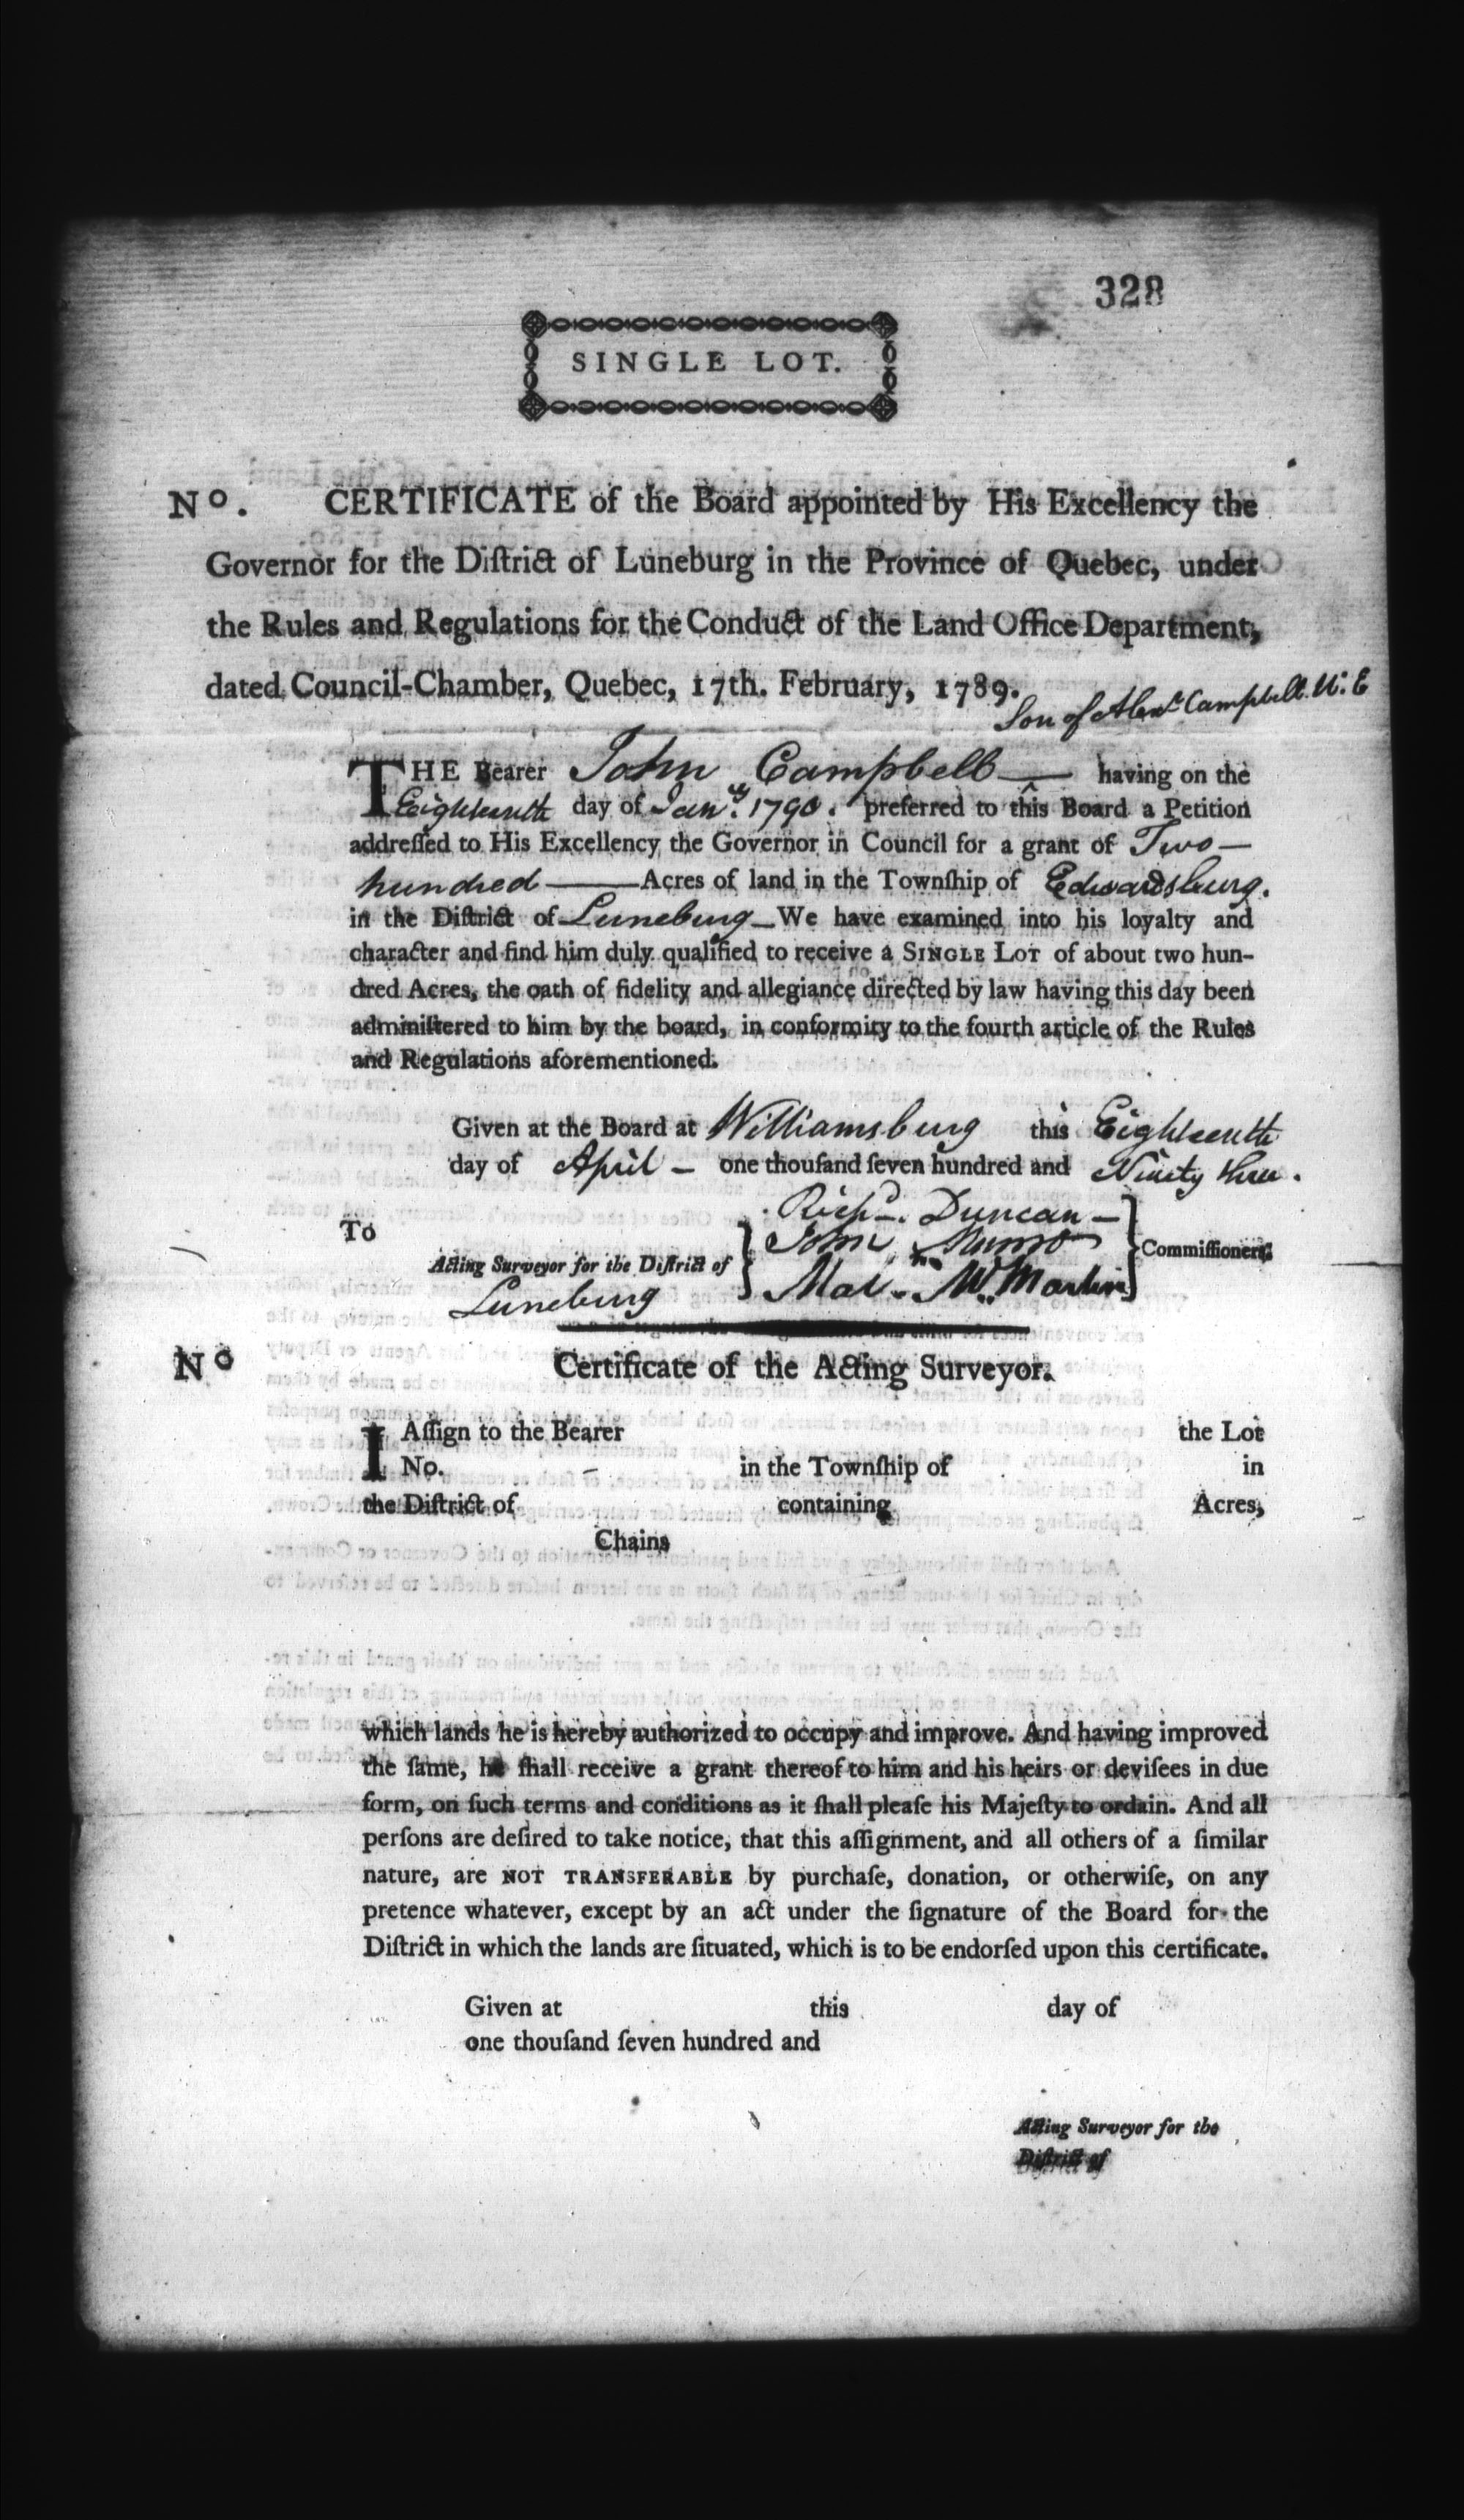 328
SINGLE LOT.
Nº. CERTIFICATE of the Board appointed by His Excellency the
Governor for the Diſtrict of Luneburg in the Province of Quebec, under
the Rules and Regulations for the Conduct of the Land Office Department,
dated Council-Chamber, Quebec, 17th. February, 1789.
Son of Alexr. Campbell U: E
THE Bearer John Campbell — having on the
Eighteenth day of Jany. 1790. preferred to this Board a Petition
addreſſed to His Excellency the Governor in Council for a grant of Two —
hundred — Acres of land in the Townſhip of Edwardsburg.
in the Diſtrict of Luneburg — We have examined into his loyalty and
character and find him duly qualified to receive a SINGLE LOT of about two hun-
dred Acres, the oath of fidelity and allegiance directed by law having this day been
adminiſtered to him by the board, in conformity to the fourth article of the Rules
and Regulations aforementioned.
Given at the Board at Williamsburg this Eighteenth
day of April — one thouſand ſeven hundred and Ninety three.
Richd. Duncan —
To John Munro
Acting Surveyor for the Diſtrict of Commiſſioners.
Luneburg Mal. Mc. Martin
Nº Certificate of the Acting Surveyor.
I Aſſign to the Bearer the Lot
No. – in the Townſhip of in
the Diſtrict of containing Acres,
Chains
which lands he is hereby authorized to occupy and improve. And having improved
the ſame, he ſhall receive a grant thereof to him and his heirs or deviſees in due
form, on ſuch terms and conditions as it ſhall pleaſe his Majeſty to ordain. And all
perſons are deſired to take notice, that this aſſignment, and all others of a ſimilar
nature, are NOT TRANSFERABLE by purchaſe, donation, or otherwiſe, on any
pretence whatever, except by an act under the ſignature of the Board for the
Diſtrict in which the lands are ſituated, which is to be endorſed upon this certificate.
Given at this day of
one thouſand ſeven hundred and
Acting Surveyor for the
Diſtrict of